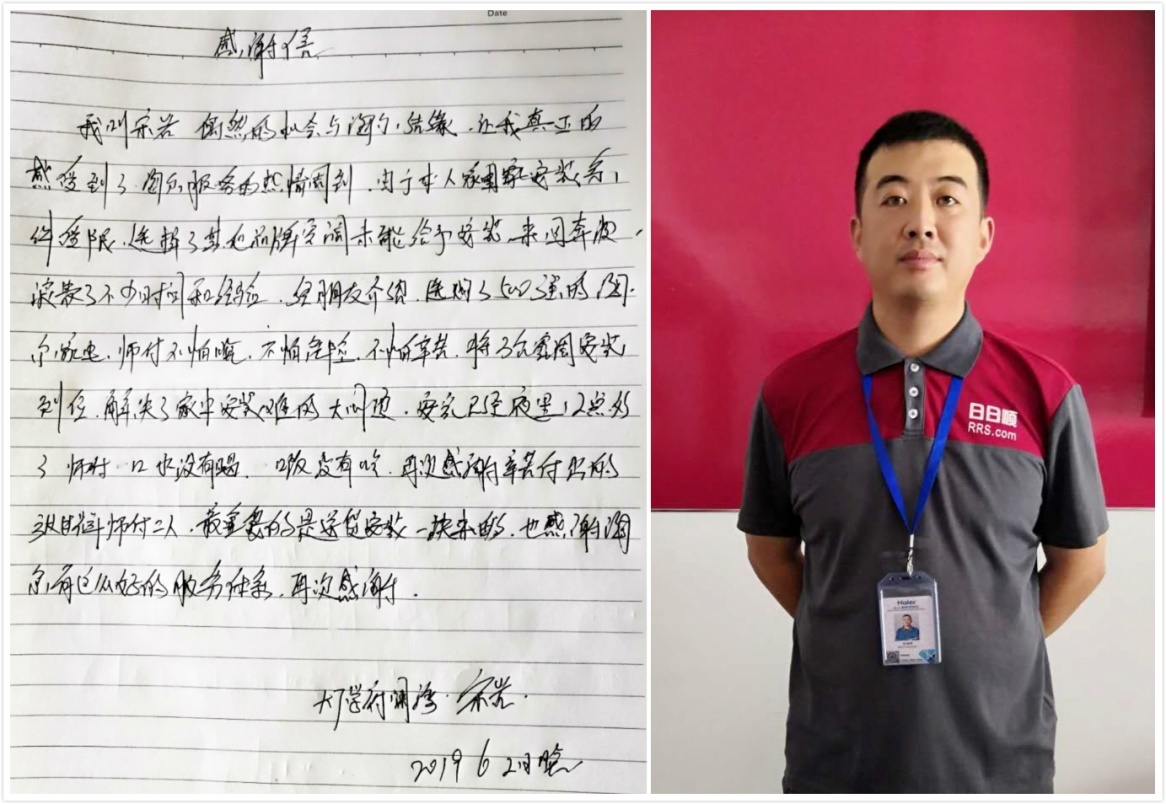 Date
感谢信
我叫宋岩 偶然的机会与海尔结缘，让我真正的
感受到了海尔服务的热情周到，由于本人家里安装条
件受限，选择了其他品牌空调未能给予安装，来回奔波，
浪费了不少时间和经验，经朋友介绍，选购了500强的海
尔家电，师付不怕 不怕危险，不怕辛苦，将3台空调安装
到位，解决了家中安装难的大问题，安完已经夜里12点多
了 师付一口水没有喝 一口饭没有吃，再次感谢辛苦付出的
师付二人，最重要的是送货安装一块来的，也感谢海
尔有这么好的服务体系，再次感谢！
大厂学府澜湾 宋岩
2019 6 2日晚
日日顺
RRS.com
Haier